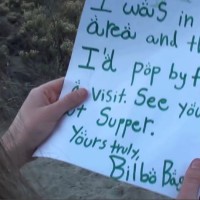 I was in
area and th
I'd pop by f
a visit. See you
at Supper.
Yours truly,
Bilbo Bag